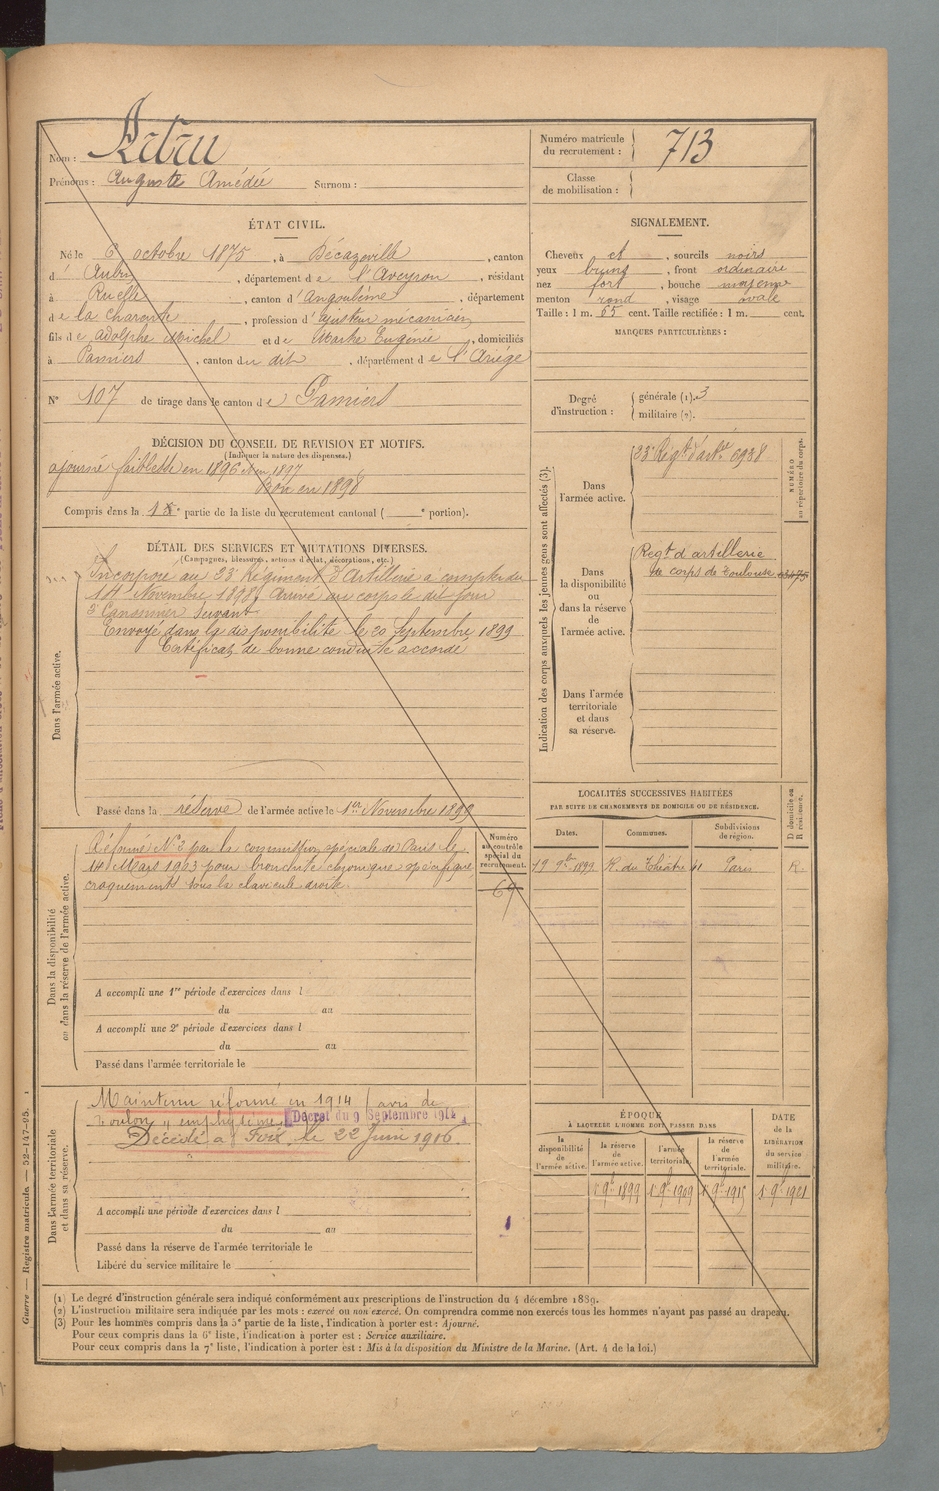 Nom :
Prénoms : Auguste Amédée Surnom :
Numéro matricule
du recrutement : 713
Classe
de mobilisation :
ÉTAT CIVIL.
Né le 6 octobre 1875, à Décazeville, canton
d' Aubin, département de l'Aveyron, résidant
à Ruelle, canton d'Angoulème, département
de la Charente, profession d'ajusteur mécanicien
fils de adolphe Michel et de Marthe Eugénie, domiciliés
à Pamiers, canton du dit, département de l'Ariége
N° 107 de tirage dans le canton de Pamiers
SIGNALEMENT.
Cheveux et, sourcils noirs
yeux bruns, front ordinaire
nez fort, bouche moyenne
menton rond, visage ovale
Taille : 1 m. 65 cent. Taille rectifiée : 1 m. cent.
MARQUES PARTICULIÈRES :
Degré
d'instruction :
générale (1). 3
militaire (2).
DÉCISION DU CONSEIL DE REVISION ET MOTIFS.
(Indiquer la nature des dispenses.)
ajourné faiblesse en 1896 et en 1897
Bon en 1898
Compris dans la 1e partie de la liste du recrutement cantonal ( e portion).
DÉTAIL DES SERVICES ET MUTATIONS DIVERSES.
(Campagnes, blessures, actions d'éclat, décorations, etc.)
Dans l'armée active.
Incorporé au 23e Régiment d'Artillerie à compter du
14 Novembre 1898, Arrivé au corps le dit jour
2e Canonnier Servant
Envoyé dans la disponibilité le 20 Septembre 1899
Certificat de bonne conduite accordé
Passé dans la réserve de l'armée active le 1er Novembre 1899
Indication des corps auxquels les jeunes gens sont affectés (3).
NUMÉRO
au répertoire du corps.
Dans
l'armée active.
23e Régt d'artie 6938
Dans
la disponibilité
ou
dans la réserve
de
l'armée active.
Regt d'artillerie
de corps de Toulouse
Dans l'armée
territoriale
et dans
sa réserve.
Dans la disponibilité
ou dans la réserve de l'armée active.
Réformé N° 2 par la commission spéciale de Paris le
14 Mars 1903 pour bronchite chronique spécifique,
craquements sous la clavicule droite.
Numéro
au contrôle
spécial du
recrutement.
69
A accompli une 1re période d'exercices dans l
du au
A accompli une 2e période d'exercices dans l
du au
Passé dans l'armée territoriale le
LOCALITÉS SUCCESSIVES HABITÉES
PAR SUITE DE CHANGEMENTS DE DOMICILE OU DE RÉSIDENCE.
D domicile ou
R résidence.
Dates. Communes. Subdivisions
de région.
17 9bre 1899 R. du Théâtre 41 Paris R.
Dans l'armée territoriale
et dans sa réserve.
Maintenu réformé en 1914 (avis de
Toulon) emphysème Décret du 9 Septembre 1914
Décédé à Foix, le 22 Juin 1916
A accompli une période d'exercices dans l
du au
Passé dans la réserve de l'armée territoriale le
Libéré du service militaire le
ÉPOQUE
À LAQUELLE L'HOMME DOIT PASSER DANS
la
disponibilité
de
l'armée active.
la réserve
de
l'armée active.
l'armée
territoriale.
la réserve
de
l'armée
territoriale.
DATE
de la
LIBÉRATION
du service
militaire.
1 9b 1899 1 9b 1909 1 9b 1915 1 9b 1921
Guerre — Registre matricule. — 52-147-95. 1
(1) Le degré d'instruction générale sera indiqué conformément aux prescriptions de l'instruction du 4 décembre 1889.
(2) L'instruction militaire sera indiquée par les mots : exercé ou non exercé. On comprendra comme non exercés tous les hommes n'ayant pas passé au drapeau.
(3) Pour les hommes compris dans la 5e partie de la liste, l'indication à porter est : Ajourné.
Pour ceux compris dans la 6e liste, l'indication à porter est : Service auxiliaire.
Pour ceux compris dans la 7e liste, l'indication à porter est : Mis à la disposition du Ministre de la Marine. (Art. 4 de la loi.)